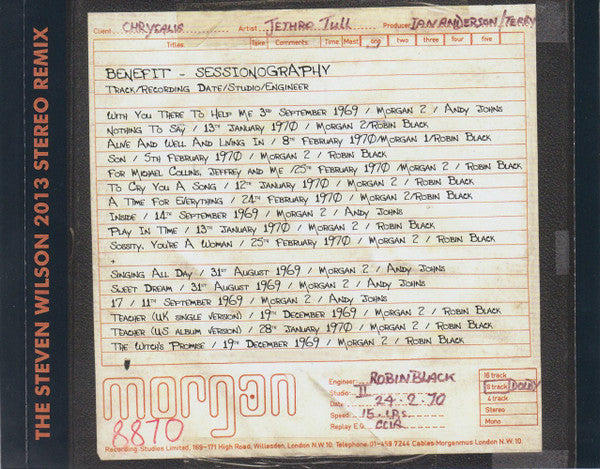 THE STEVEN WILSON 2013 STEREO REMIX
Client CHRYSALIS Artist JETHRO TULL Producer IAN ANDERSON/TERRY
Titles: Take Comments: Time Mast one two three four five
BENEFIT - SESSIONOGRAPHY
TRACK/RECORDING DATE/STUDIO/ENGINEER
WITH YOU THERE TO HELP ME 3RD SEPTEMBER 1969 / MORGAN 2 / ANDY JOHNS
NOTHING TO SAY / 13TH JANUARY 1970 / MORGAN 2/ROBIN BLACK
ALIVE AND WELL AND LIVING IN / 8TH FEBRUARY 1970/MORGAN 1/ROBIN BLACK
SON / 5TH FEBRUARY 1970 / MORGAN 2 / ROBIN BLACK
FOR MICHAEL COLLINS, JEFFREY AND ME /25TH FEBRUARY 1970 /MORGAN 2 / ROBIN BLACK
TO CRY YOU A SONG / 12TH JANUARY 1970 / MORGAN 2 / ROBIN BLACK
A TIME FOR EVERYTHING / 24TH FEBRUARY 1970 / MORGAN 2/ROBIN BLACK
INSIDE / 14TH SEPTEMBER 1969 / MORGAN 2 / ANDY JOHNS
PLAY IN TIME / 13TH JANUARY 1970 / MORGAN 2 / ROBIN BLACK
SOSSITY, YOU'RE A WOMAN / 25TH FEBRUARY 1970 / MORGAN 2 / ROBIN BLACK
+
SINGING ALL DAY / 31ST AUGUST 1969 / MORGAN 2 / ANDY JOHNS
SWEET DREAM / 31ST AUGUST 1969 / MORGAN 2 / ANDY JOHNS
17 / 11TH SEPTEMBER 1969 / MORGAN 2 / ANDY JOHNS
TEACHER (UK SINGLE VERSION) / 19TH DECEMBER 1969 / MORGAN 2 / ROBIN BLACK
TEACHER (US ALBUM VERSION) / 28TH JANUARY 1970 / MORGAN 2 / ROBIN BLACK
THE WITCH'S PROMISE / 19TH DECEMBER 1969 / MORGAN 2 / ROBIN BLACK
morgan
8870
Engineer: ROBIN BLACK
Studio: II
Date: 24-2-70
Speed: 15 I.P.S.
Replay E.Q. CCIR
16 track
8 track DOLBY
4 track
Stereo
Mono
Recording Studios Limited, 169-171 High Road, Willesden, London N.W.10. Telephone: 01-459 7244 Cables: Morganmus London N.W.10.